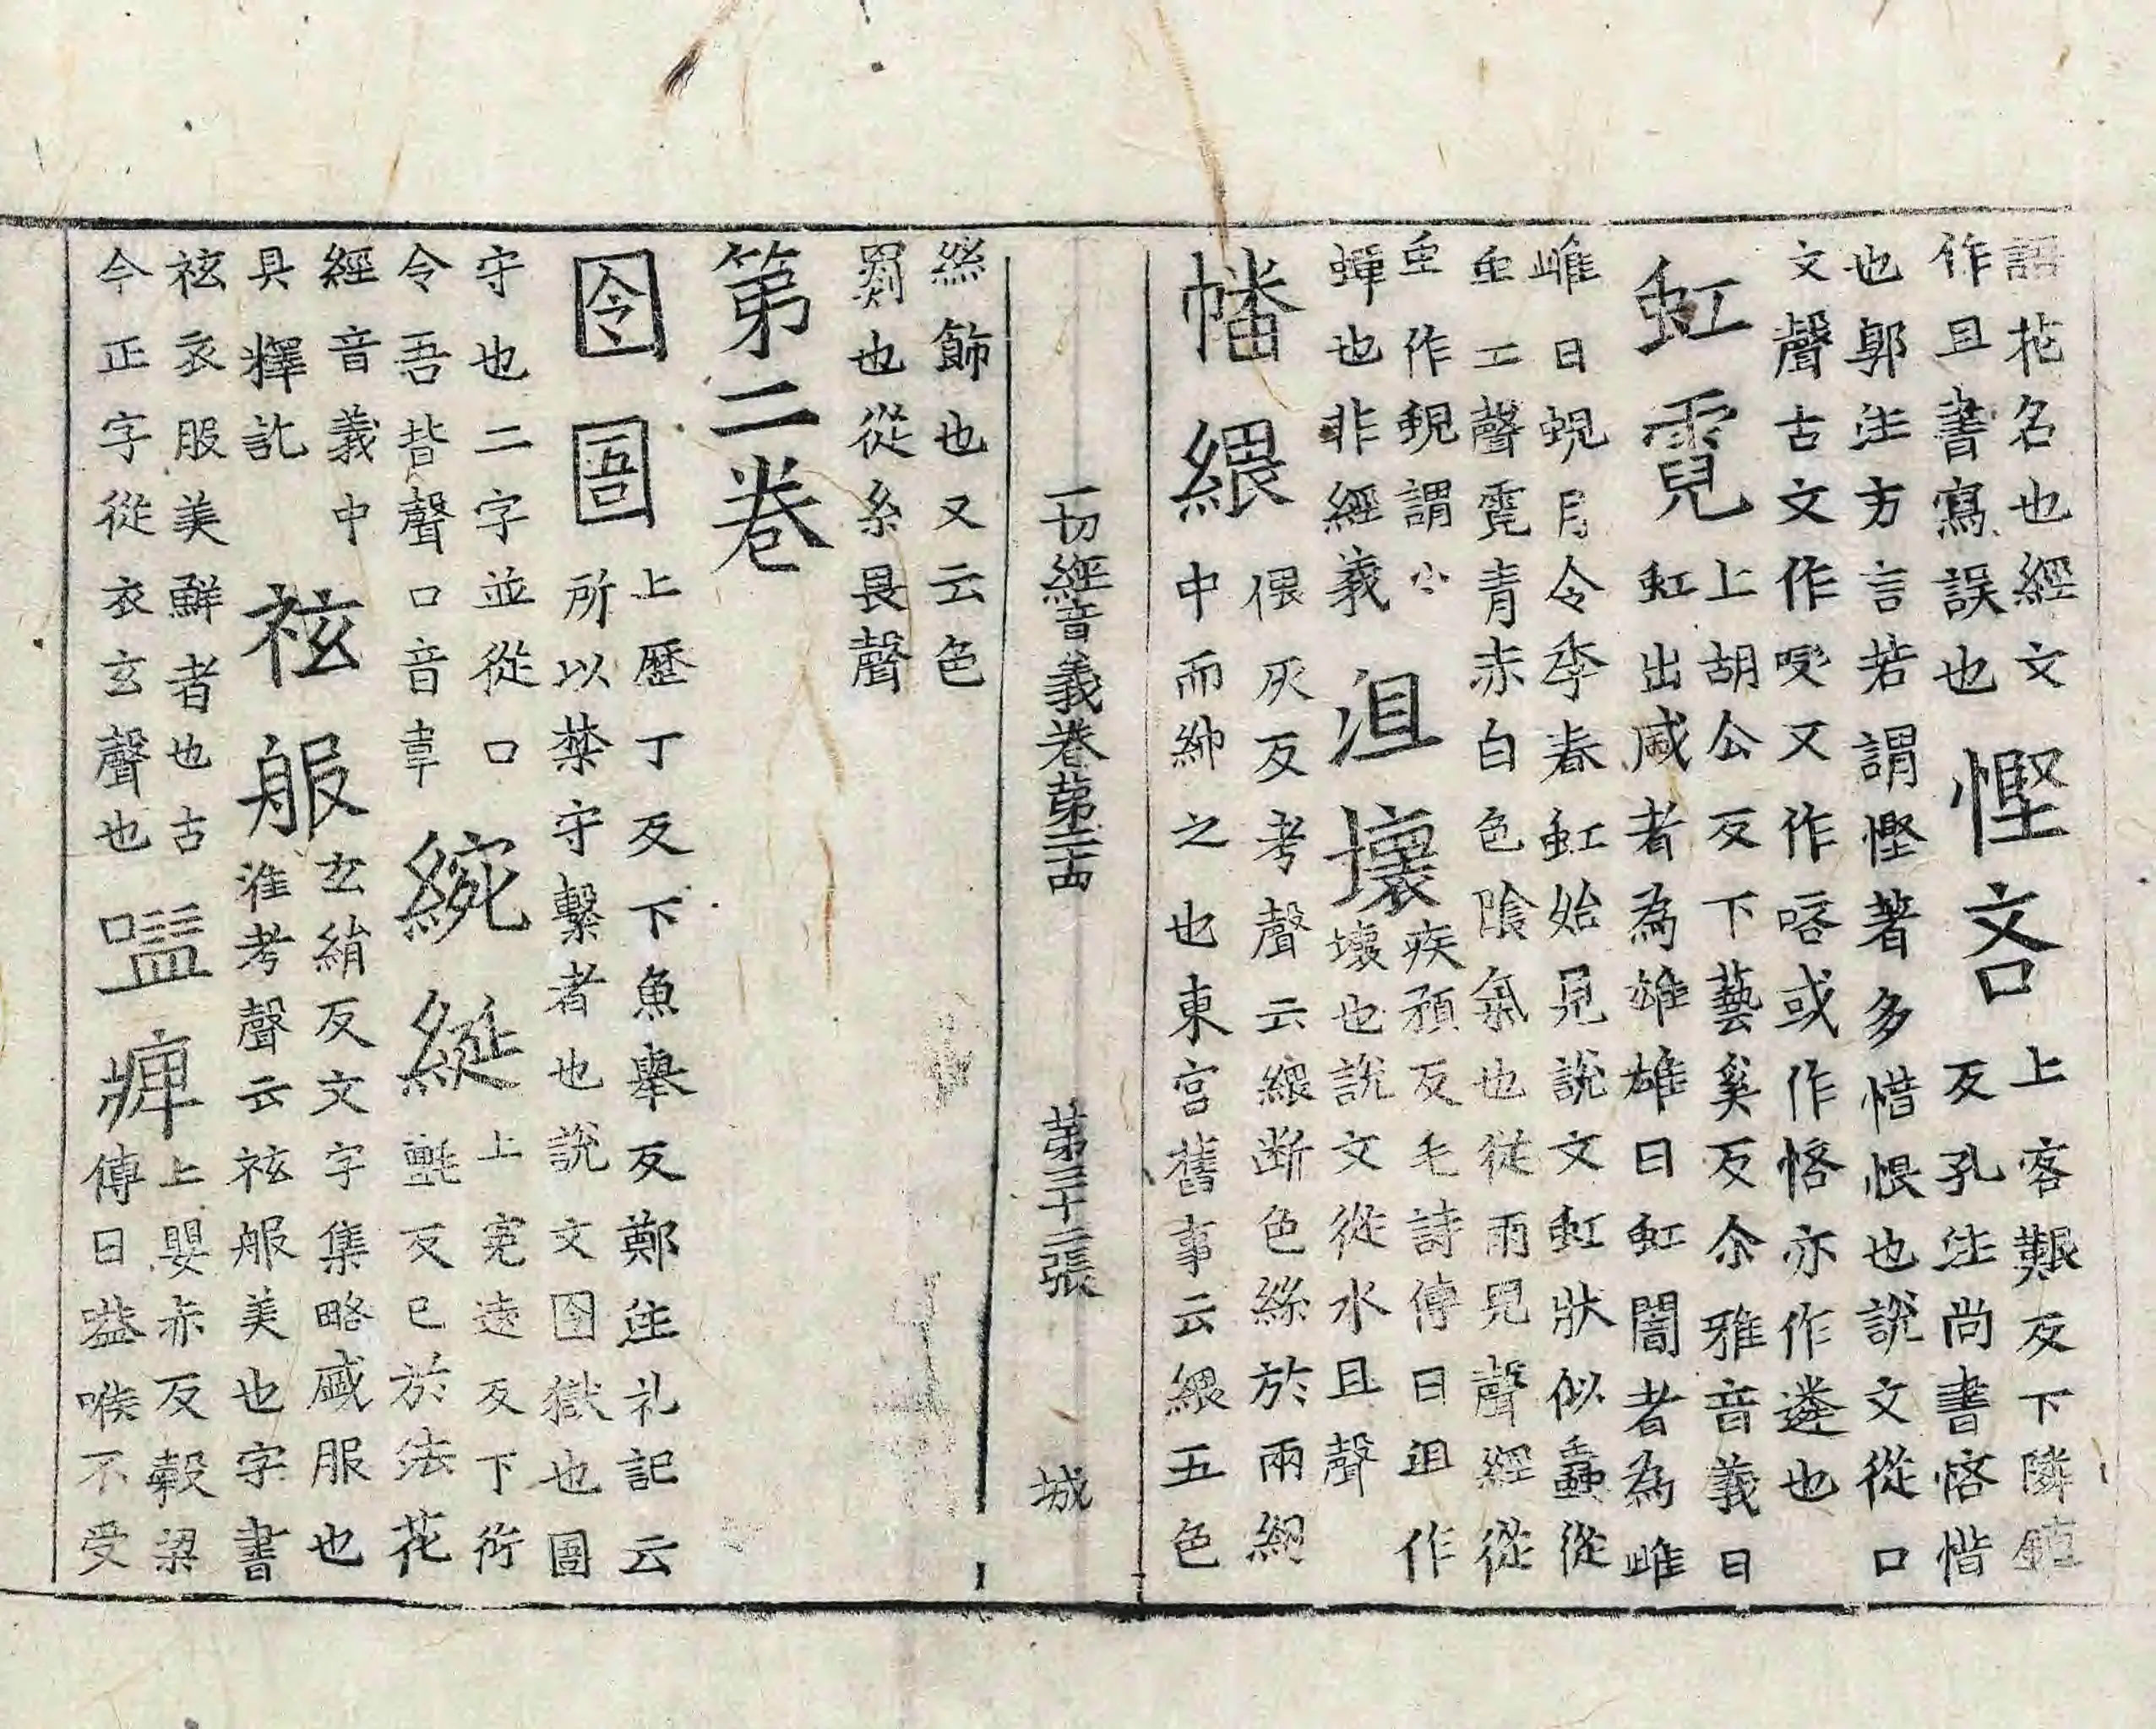 語花名也經文
作且書寫誤也
慳吝
上客艱反下隣鎮
反孔注尚書悋惜
也郭注方言若謂慳著多惜恨也說文從口
文聲古文作㖁又作㗉或作悋亦作遴也
虹霓
上胡公反下藝奚反尒雅音義曰
虹出盛者為雄雄曰虹闇者為雌
雌曰蜺月令季春虹始見說文虹狀似蟲從
虫工聲霓青赤白色陰氣也從雨兒聲經從
虫作蜺謂小
蟬也非經義
沮壞
疾預反毛詩傳曰沮作
壞也說文從水且聲
幡緥
偎灰反考聲云緥斷色絲於兩緥
中而紳之也東宮舊事云緥五色
一切經音義卷第二十四
第三十二張
城
絲飾也又云色
罽也從糸畏聲
第二卷
囹圄
上歷丁反下魚舉反鄭注礼記云
所以禁守繫者也說文囹獄也圄
守也二字並從口
令吾皆聲口音韋
綩綖
上宛遠反下衍
氈反已於法花
經音義中
具釋訖
袨服
玄絹反文字集略盛服也
淮考聲云袨服美也字書
袨衣服美鮮者也古
今正字從衣玄聲也
嗌痺
上嬰赤反轂梁
傳曰嗌喉不受